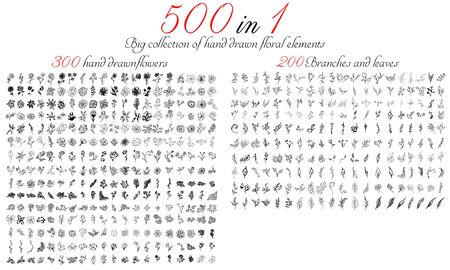 500 in 1
Big collection of hand drawn floral elements
300 hand drawnflowers
200 Branches and leaves